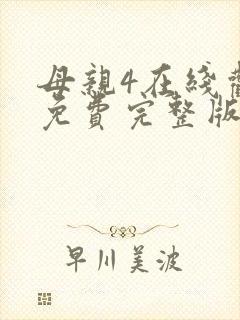 母親4在綫
免費完整版
早川美波